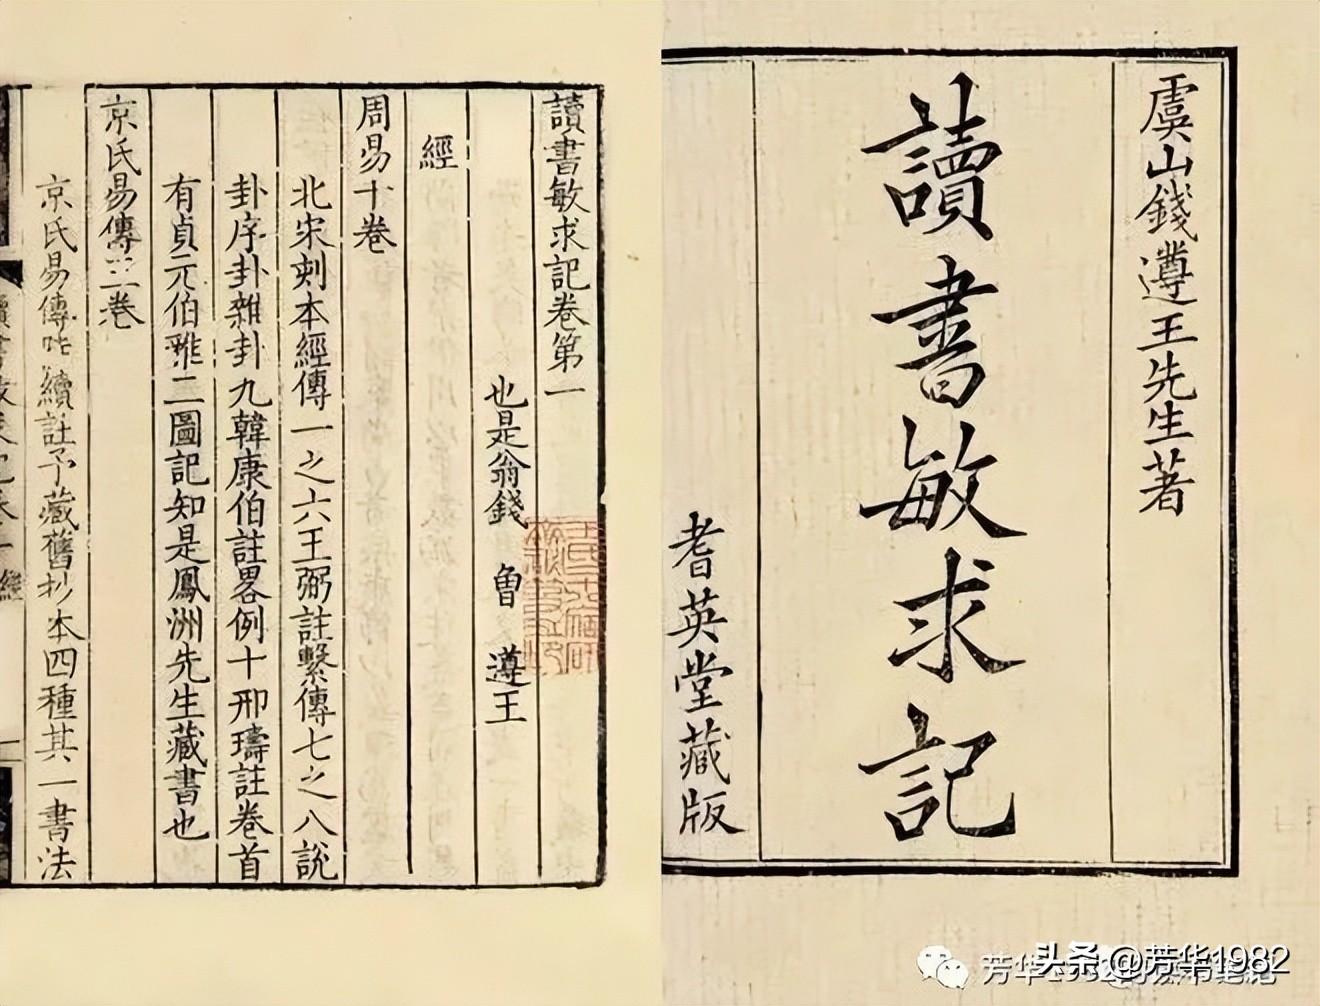 虞山錢遵王先生著
讀書敏求記
耆英堂藏版
讀書敏求記卷第一
也是翁錢 曾 遵王
經
周易十卷
北宋刻本經傳一之六王弼註繫傳七之八說
卦序卦雜卦九韓康伯註畧例十邢璹註卷首
有貞元伯雅二圖記知是鳳洲先生藏書也
京氏易傳三卷
京氏易傳陸續註予藏舊抄本四種其一書法
头条 @芳华1982